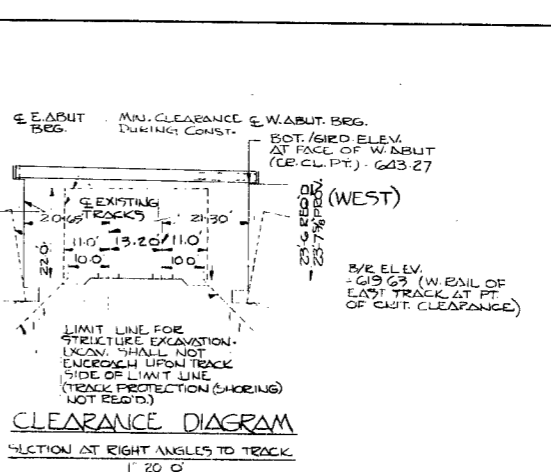 ℄ E. ABUT
BRG.
MIN. CLEARANCE
DURING CONST.
℄ W. ABUT. BRG.
BOT./GIRD. ELEV.
AT FACE OF W. ABUT
(CR. CL. PT.) - 643.27
℄ EXISTING
TRACKS
20.65'
21.30'
11.0' 13.20' 11.0'
10.0' 10.0'
22.0'
23'-6 REQ'D
23'-7 5/8 PROV.
(WEST)
B/R ELEV.
- 619.63 (W. RAIL OF
EAST TRACK AT PT.
OF CRIT. CLEARANCE)
LIMIT LINE FOR
STRUCTURE EXCAVATION.
EXCAV. SHALL NOT
ENCROACH UPON TRACK
SIDE OF LIMIT LINE
(TRACK PROTECTION (SHORING)
NOT REQ'D.)
CLEARANCE DIAGRAM
SECTION AT RIGHT ANGLES TO TRACK
1" 20' 0"